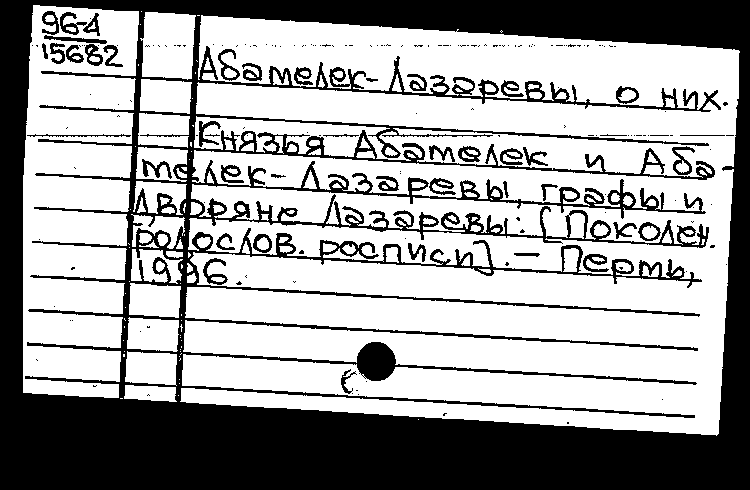 96-4
15682
Абамелек-Лазаревы, о них.
Князья Абамелек и Аба-
мелек-Лазаревы, графы и
дворяне Лазаревы: [Поколен.
родослов. росписи]. — Пермь,
1996.